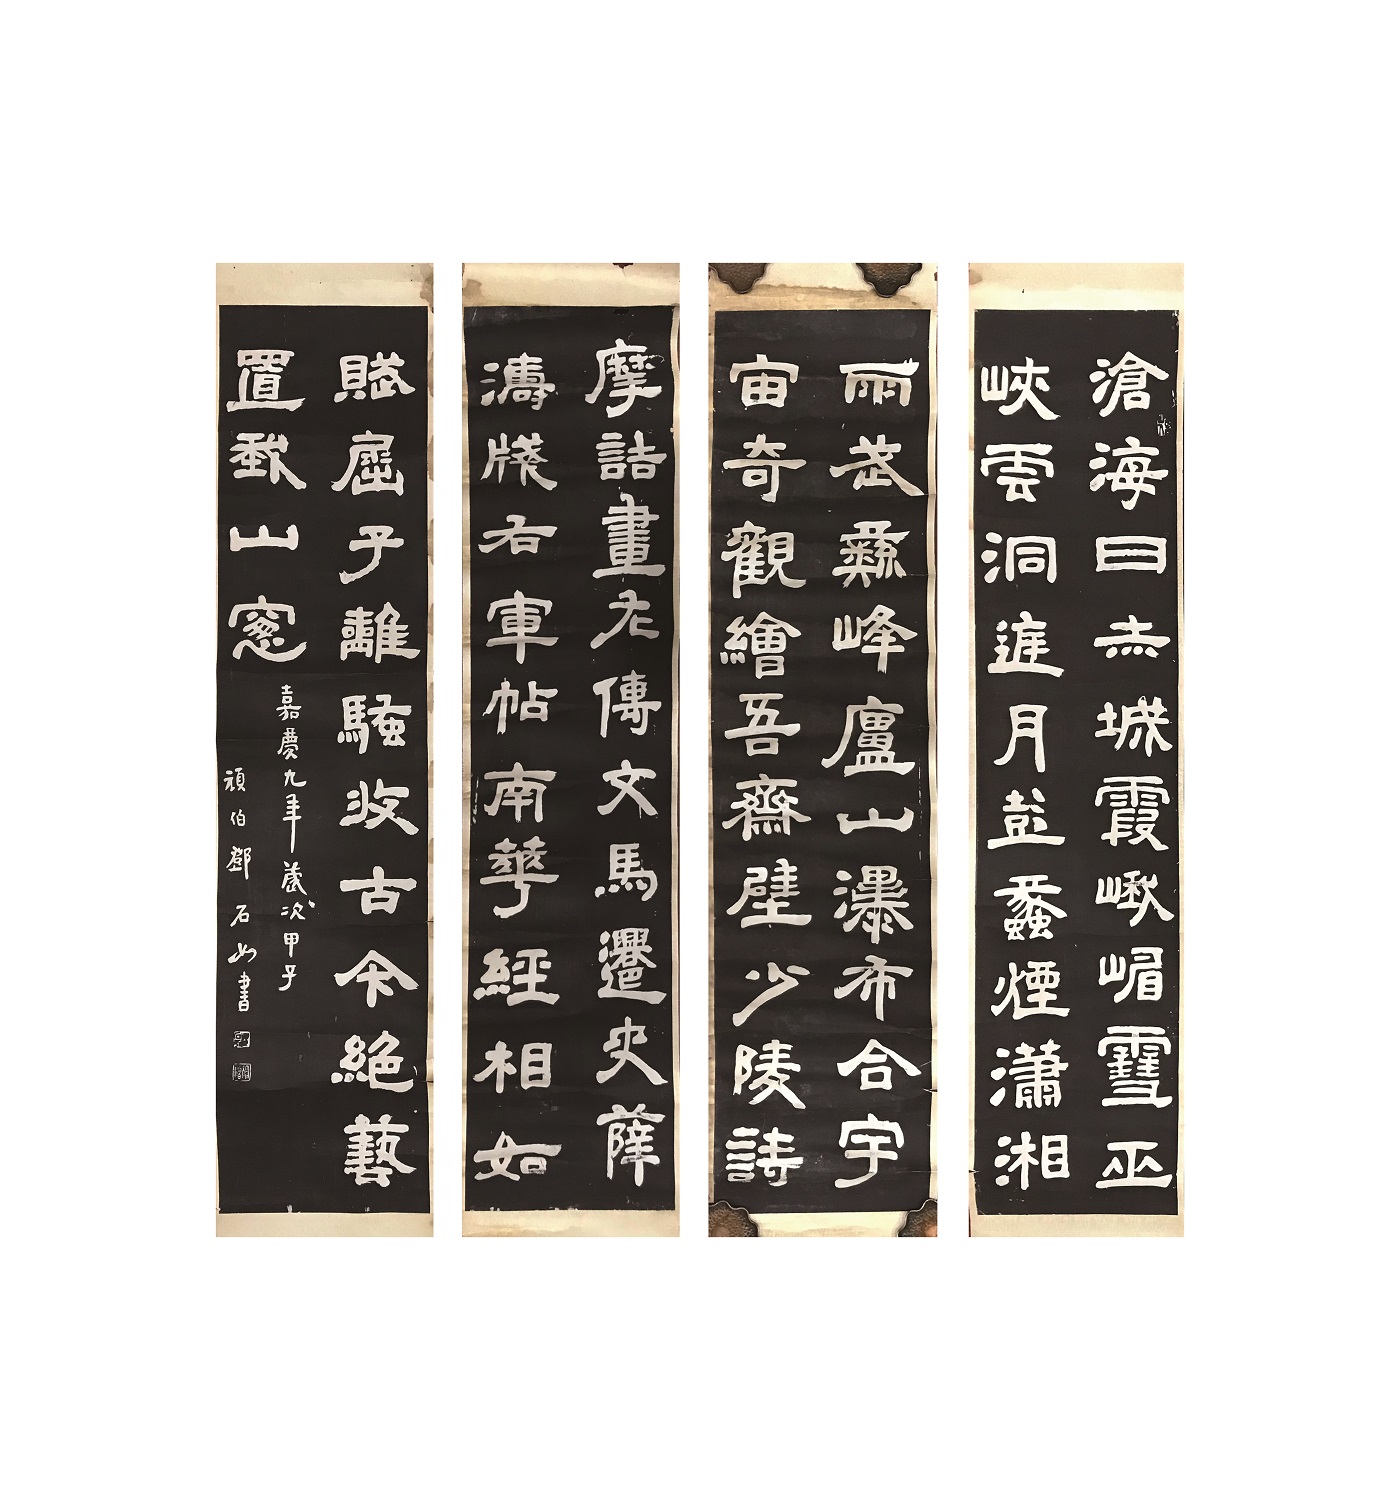 滄海日赤城霞峨嵋雪巫
峽雲洞庭月彭蠡煙瀟湘
雨武彝峰廬山瀑布合宇
宙奇觀繪吾齋壁少陵詩
摩詰畫左傳文馬遷史薛
濤牋右軍帖南華經相如
賦屈子離騷收古今絕藝
置我山窻
嘉慶九年歲次甲子
頑伯鄧石如書